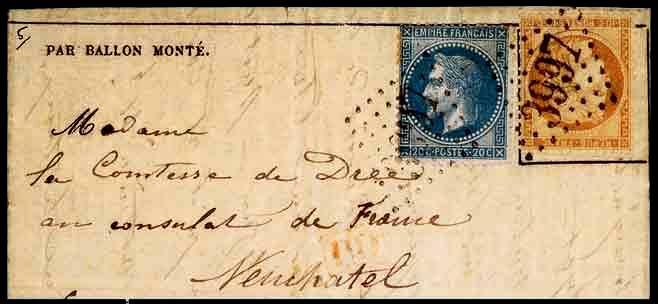 5/
PAR BALLON MONTÉ.
EMPIRE FRANÇAIS
20C POSTES 20C
3997
Madame
la Comtesse de Drée
au consulat de France
Neuchatel